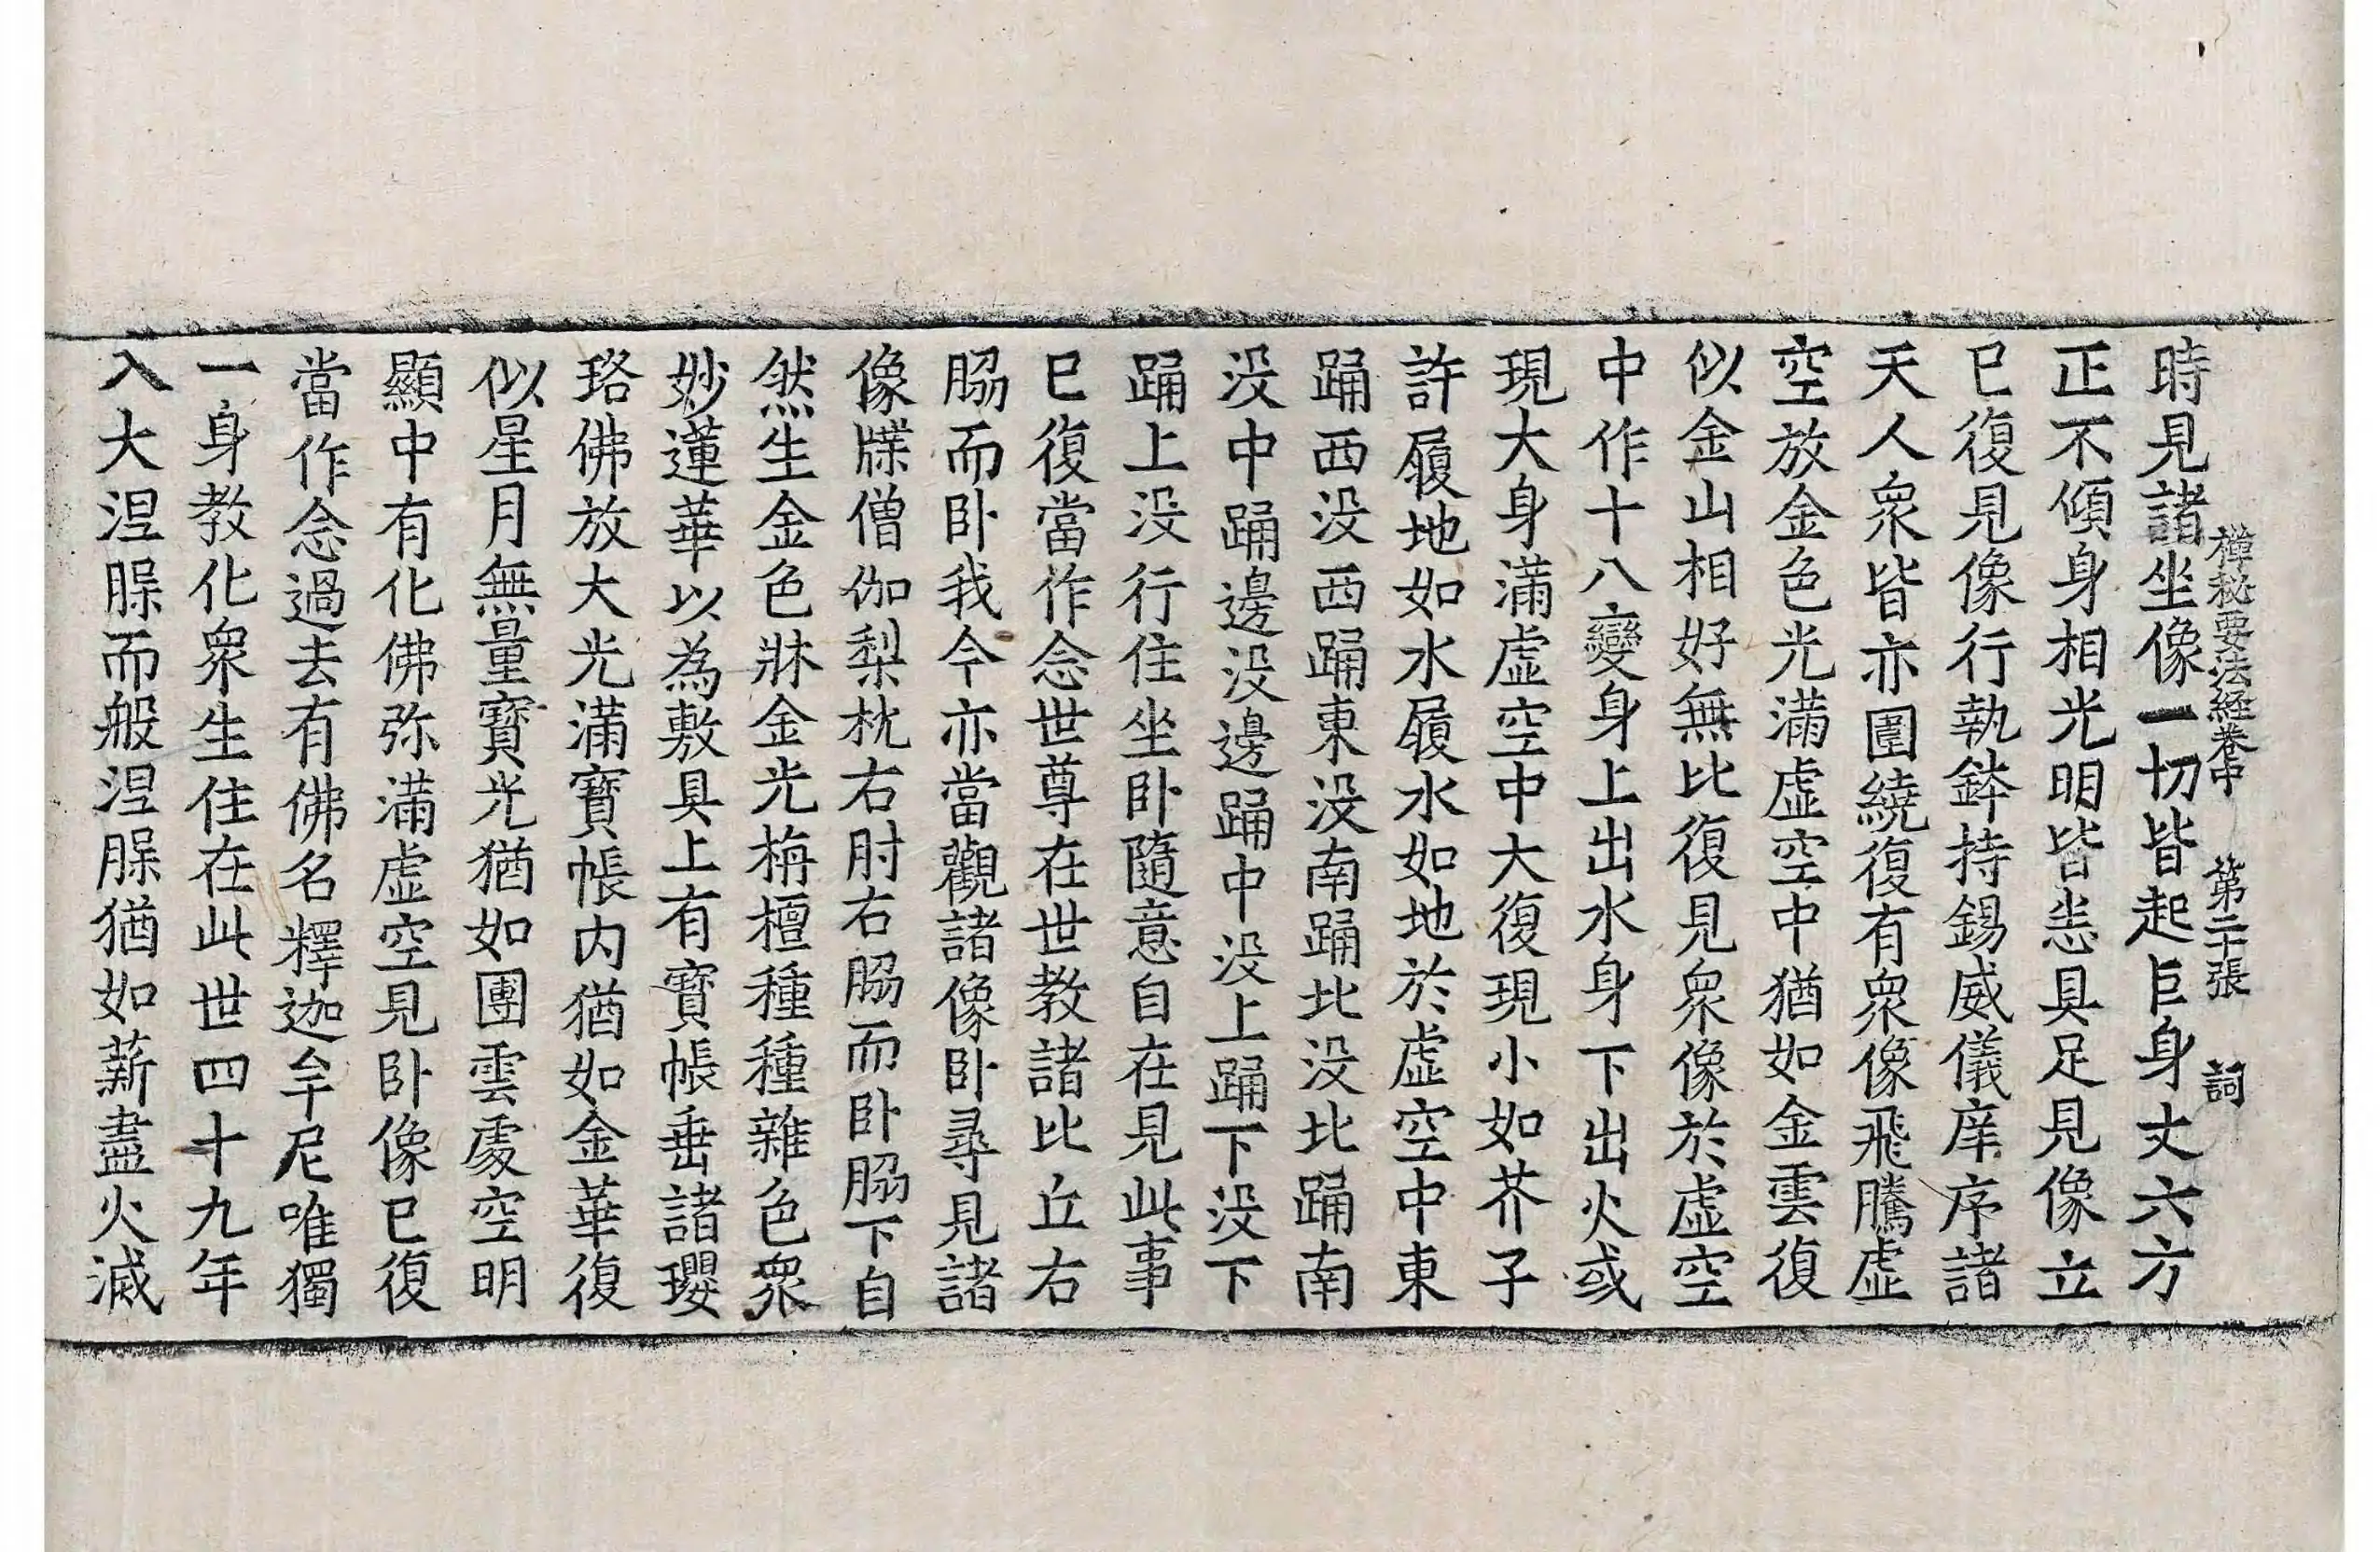 禪秘要法経卷中 第二十張 詞
時見諸坐像一切皆起巨身丈六方
正不傾身相光明皆悉具足見像立
已復見像行執鉢持錫威儀庠序諸
天人衆皆亦圍繞復有衆像飛騰虛
空放金色光滿虛空中猶如金雲復
似金山相好無比復見衆像於虛空
中作十八變身上出水身下出火或
現大身滿虛空中大復現小如芥子
許履地如水履水如地於虛空中東
踊西没西踊東没南踊北没北踊南
没中踊邊没邊踊中没上踊下没下
踊上没行住坐卧隨意自在見此事
已復當作念世尊在世教諸比丘右
脇而卧我今亦當觀諸像卧尋見諸
像牒僧伽梨枕右肘右脇而卧脇下自
然生金色牀金光栴檀種種雜色衆
妙蓮華以為敷具上有寳帳垂諸瓔
珞佛放大光滿寳帳内猶如金華復
似星月無量寳光猶如團雲處空明
顯中有化佛弥滿虛空見卧像已復
當作念過去有佛名釋迦牟尼唯獨
一身教化衆生住在此世四十九年
入大涅槃而般涅槃猶如薪盡火滅